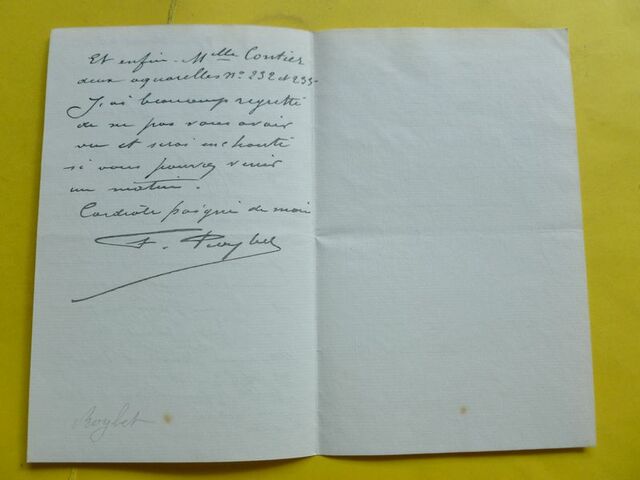 Et enfin. Melle Contier
deux aquarelles No 232 et 233-
J'ai beaucoup regretté
de ne pas vous avoir
vu et serai enchanté
si vous pouvez venir
un matin.
Cordiale poignée de main
F. Roybet
Roybet